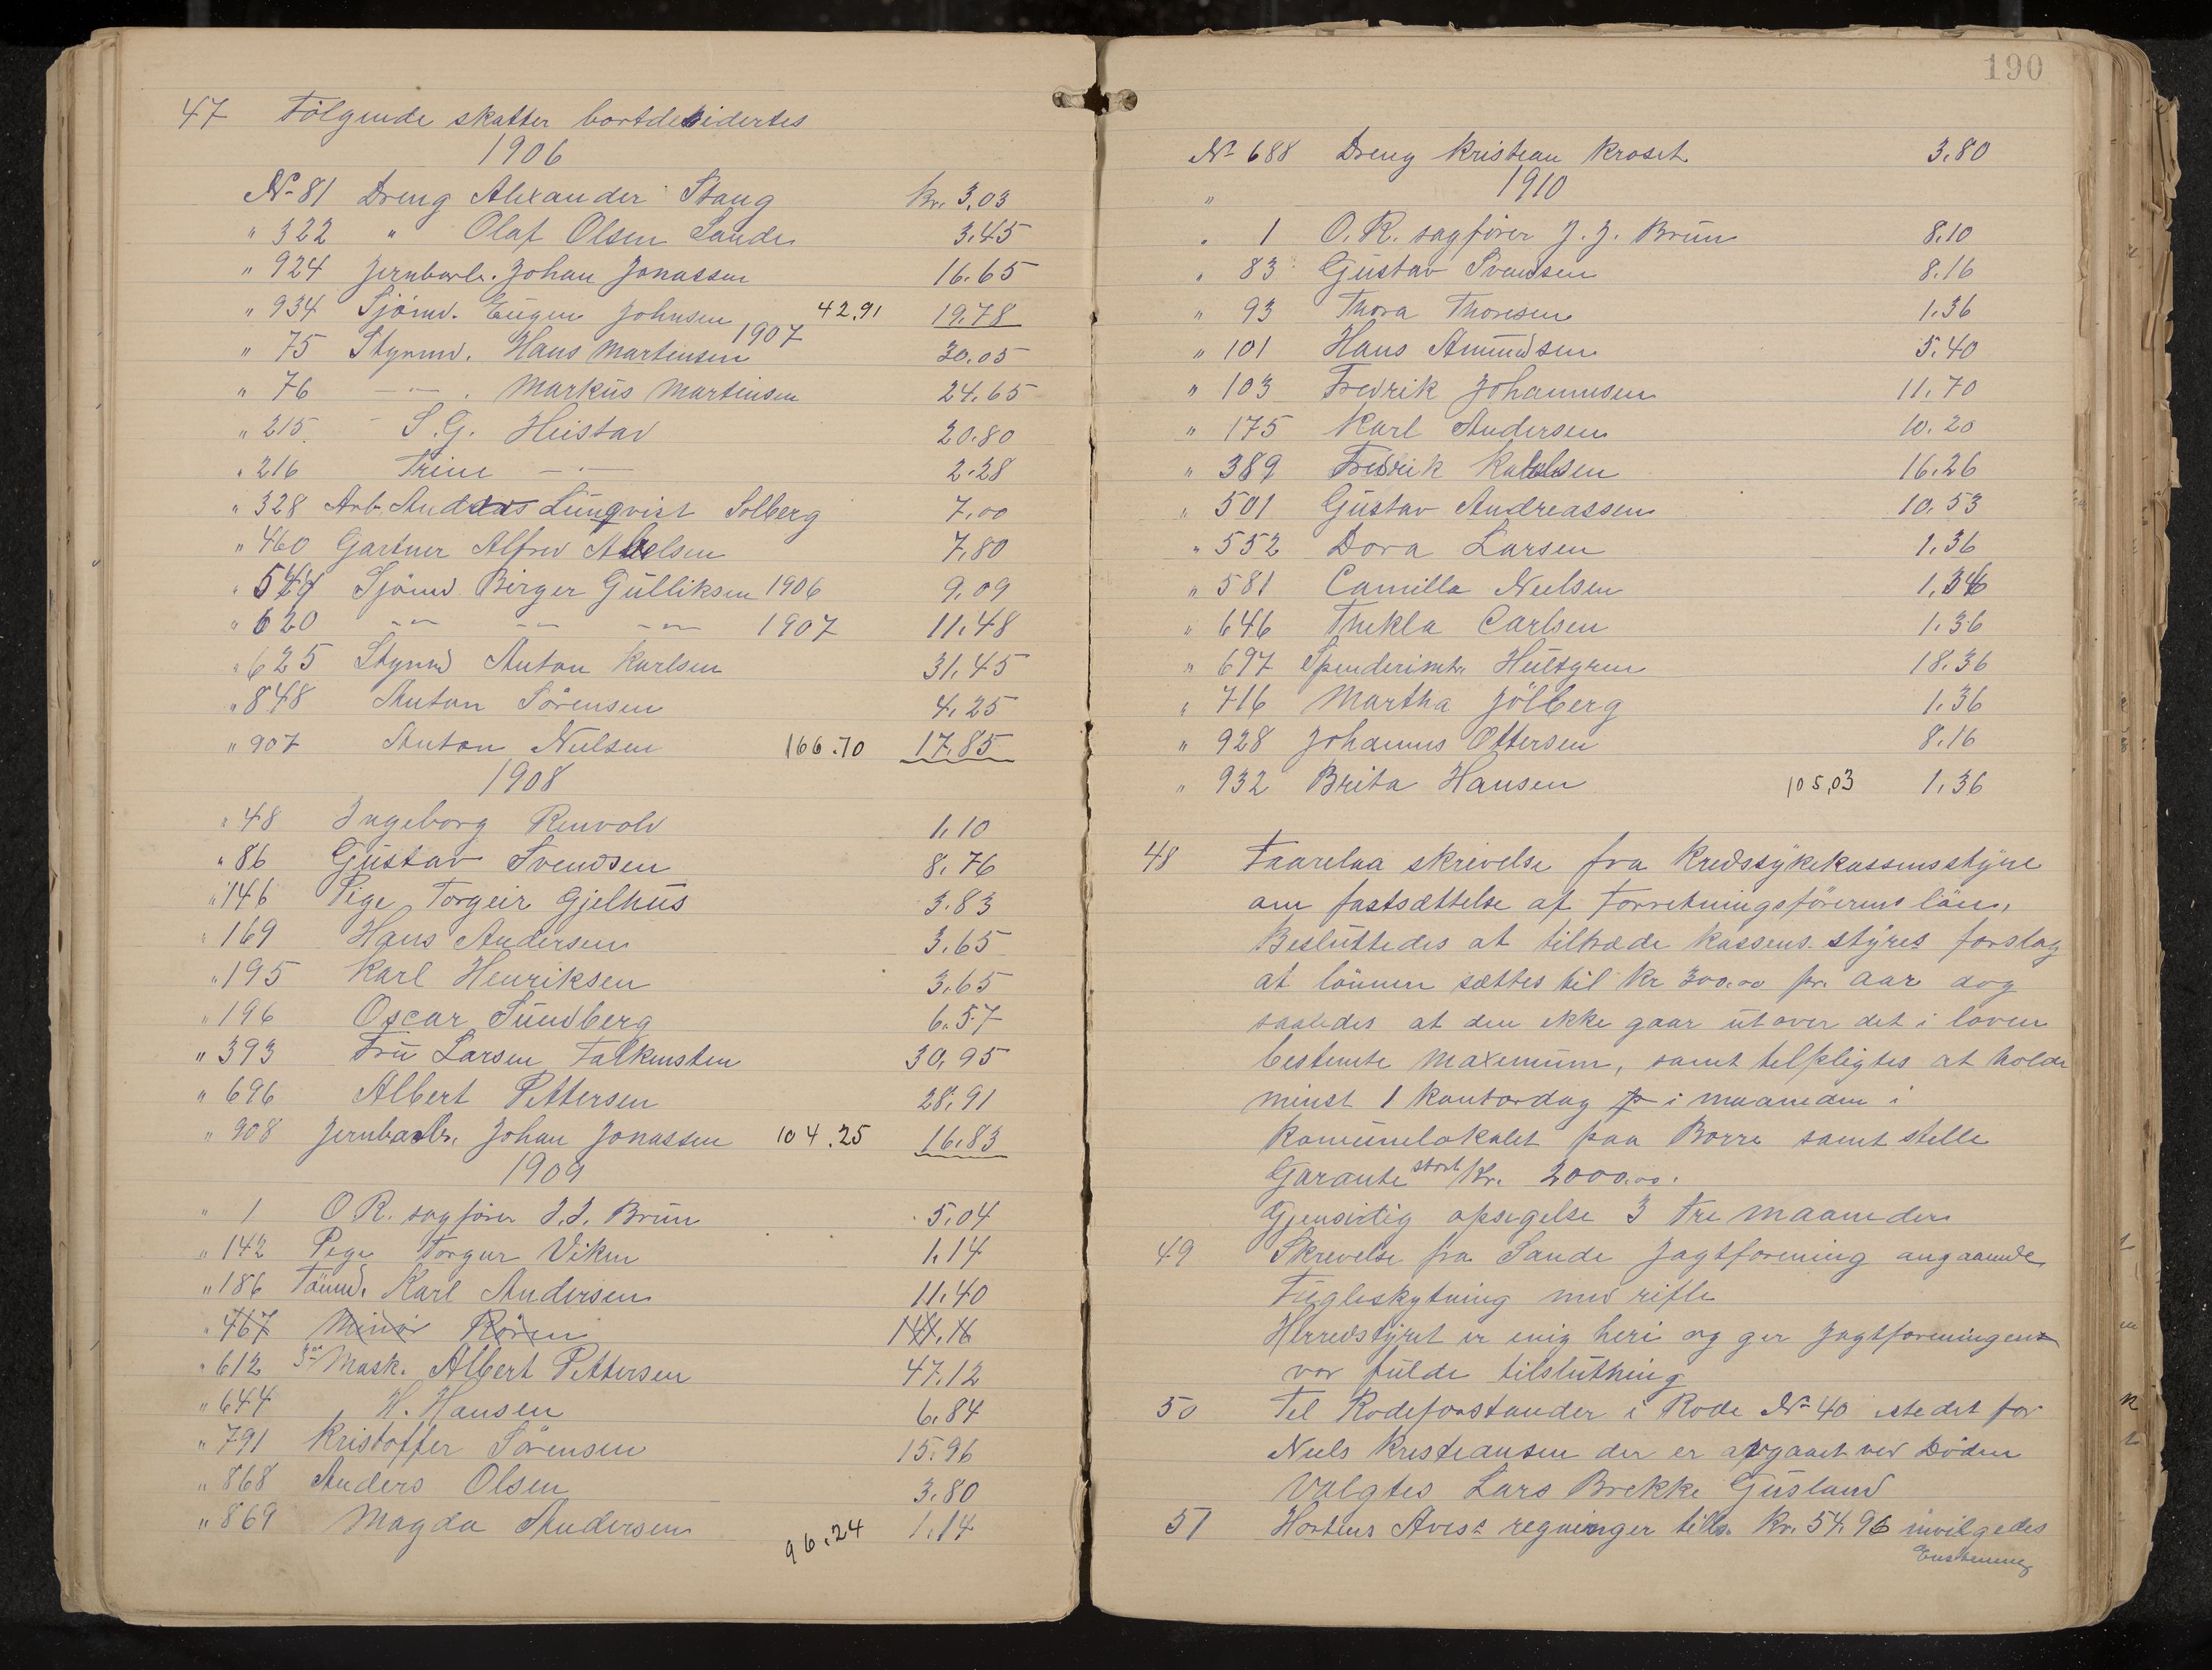 47 Følgende skatter bortdesidertes
1906
No 81 Dreng Alexander Stang kr. 3.03
" 322 " Olaf Olsen Sande 3.45
" 924 Jernbarb. Johan Jonassen 16.65
" 934 Sjømd. Eugen Johnsen 42.91 19.78
1907
" 75 Styrmd. Hans Martinsen 30.05
" 76 —"— . Markus Martinsen 24.65
" 215 S.G. Heistad 20.80
" 216 Trine —"— 2.28
" 328 Arb. Andreas Lunqvist Solberg 7.00
" 460 Gartner Alfred Abelsen 7.80
" 544 Sjømd. Birger Gulliksen 1906 9.09
" 620 —"— —"— —"— 1907 11.48
" 625 Styrmd Anton Karlsen 31.45
" 848 Anton Sørensen 4.25
" 907 Anton Nilsen 166.70 17.85
1908
" 48 Ingeborg Renvold 1.10
" 86 Gustav Svendsen 8.76
" 146 Pige Torgeir Gjelhus 3.83
" 169 Hans Andersen 3.65
" 195 Karl Henriksen 3.65
" 196 Oscar Sundberg 6.57
" 393 Fru Larsen Falkensten 30.95
" 696 Albert Pettersen 28.91
" 908 Jernbarb. Johan Jonassen 104.25 16.83
1909
" 1 O R. sagfører J.J. Brun 5.04
" 142 Pige Torgeir Viken 1.14
" 186 Tømd. Karl Andersen 11.40
" 467 Minor Røren
" 612 3die Mask. Albert Pettersen 47.12
" 644 H. Hansen 6.84
" 791 Kristoffer Sørensen 15.96
" 868 Anders Olsen 3.80
" 869 Magda Andersen 96.24 1.14
190
No 688 Dreng Kristian Kroset 3.80
" 1910
" 1 O.R. sagfører J.J. Brun 8.10
" 83 Gustav Svendsen 8.16
" 93 Thora Thoresen 1.36
" 101 Hans Amundsen 5.40
" 103 Fredrik Johannesen 11.70
" 175 Karl Andersen 10.20
" 389 Fredrik 16.26
" 501 Gustav Andreassen 10.53
" 552 Dora Larsen 1.36
" 581 Camilla Nielsen 1.36
" 646 Thekla Carlsen 1.36
" 697 Hultgren 18.36
" 716 Martha Jølberg 1.36
" 928 Johannes Ottersen 8.16
" 932 Brita Hansen 105,03 1.36
48 Foorelaa skrivelse fra Kredssykekassensstyre
om fastsættelse af Forretningsførerens løn.
Besluttedes at tiltræde kassens styres forslag
at lønnen sættes til kr 300.00 pr. aar dog
saaledes at den ikke gaar utover det i loven
bestemte maximum, samt tilpligtes at holde
minst 1 kontordag p i maaneden i
Komunelokalet paa Borre samt stille
Garanti stort Kr. 2000.00.
Gjensidig opsigelse 3 tre maaneder
49 Skrivelse fra Sande Jagtforening angaaende
Fugleskytning med rifle
Herredstyret er enig heri og gir Jagtforeningen
vor fulde tilslutning
50 Til Rodeforstander i Rode No 40 istedet for
Niels Kristiansen der er avgaaet ved Døden
valgtes Lars Brekke Gusland
51 Hortens Avis's regninger tils. Kr. 54.96 invilgedes
Enstemmig